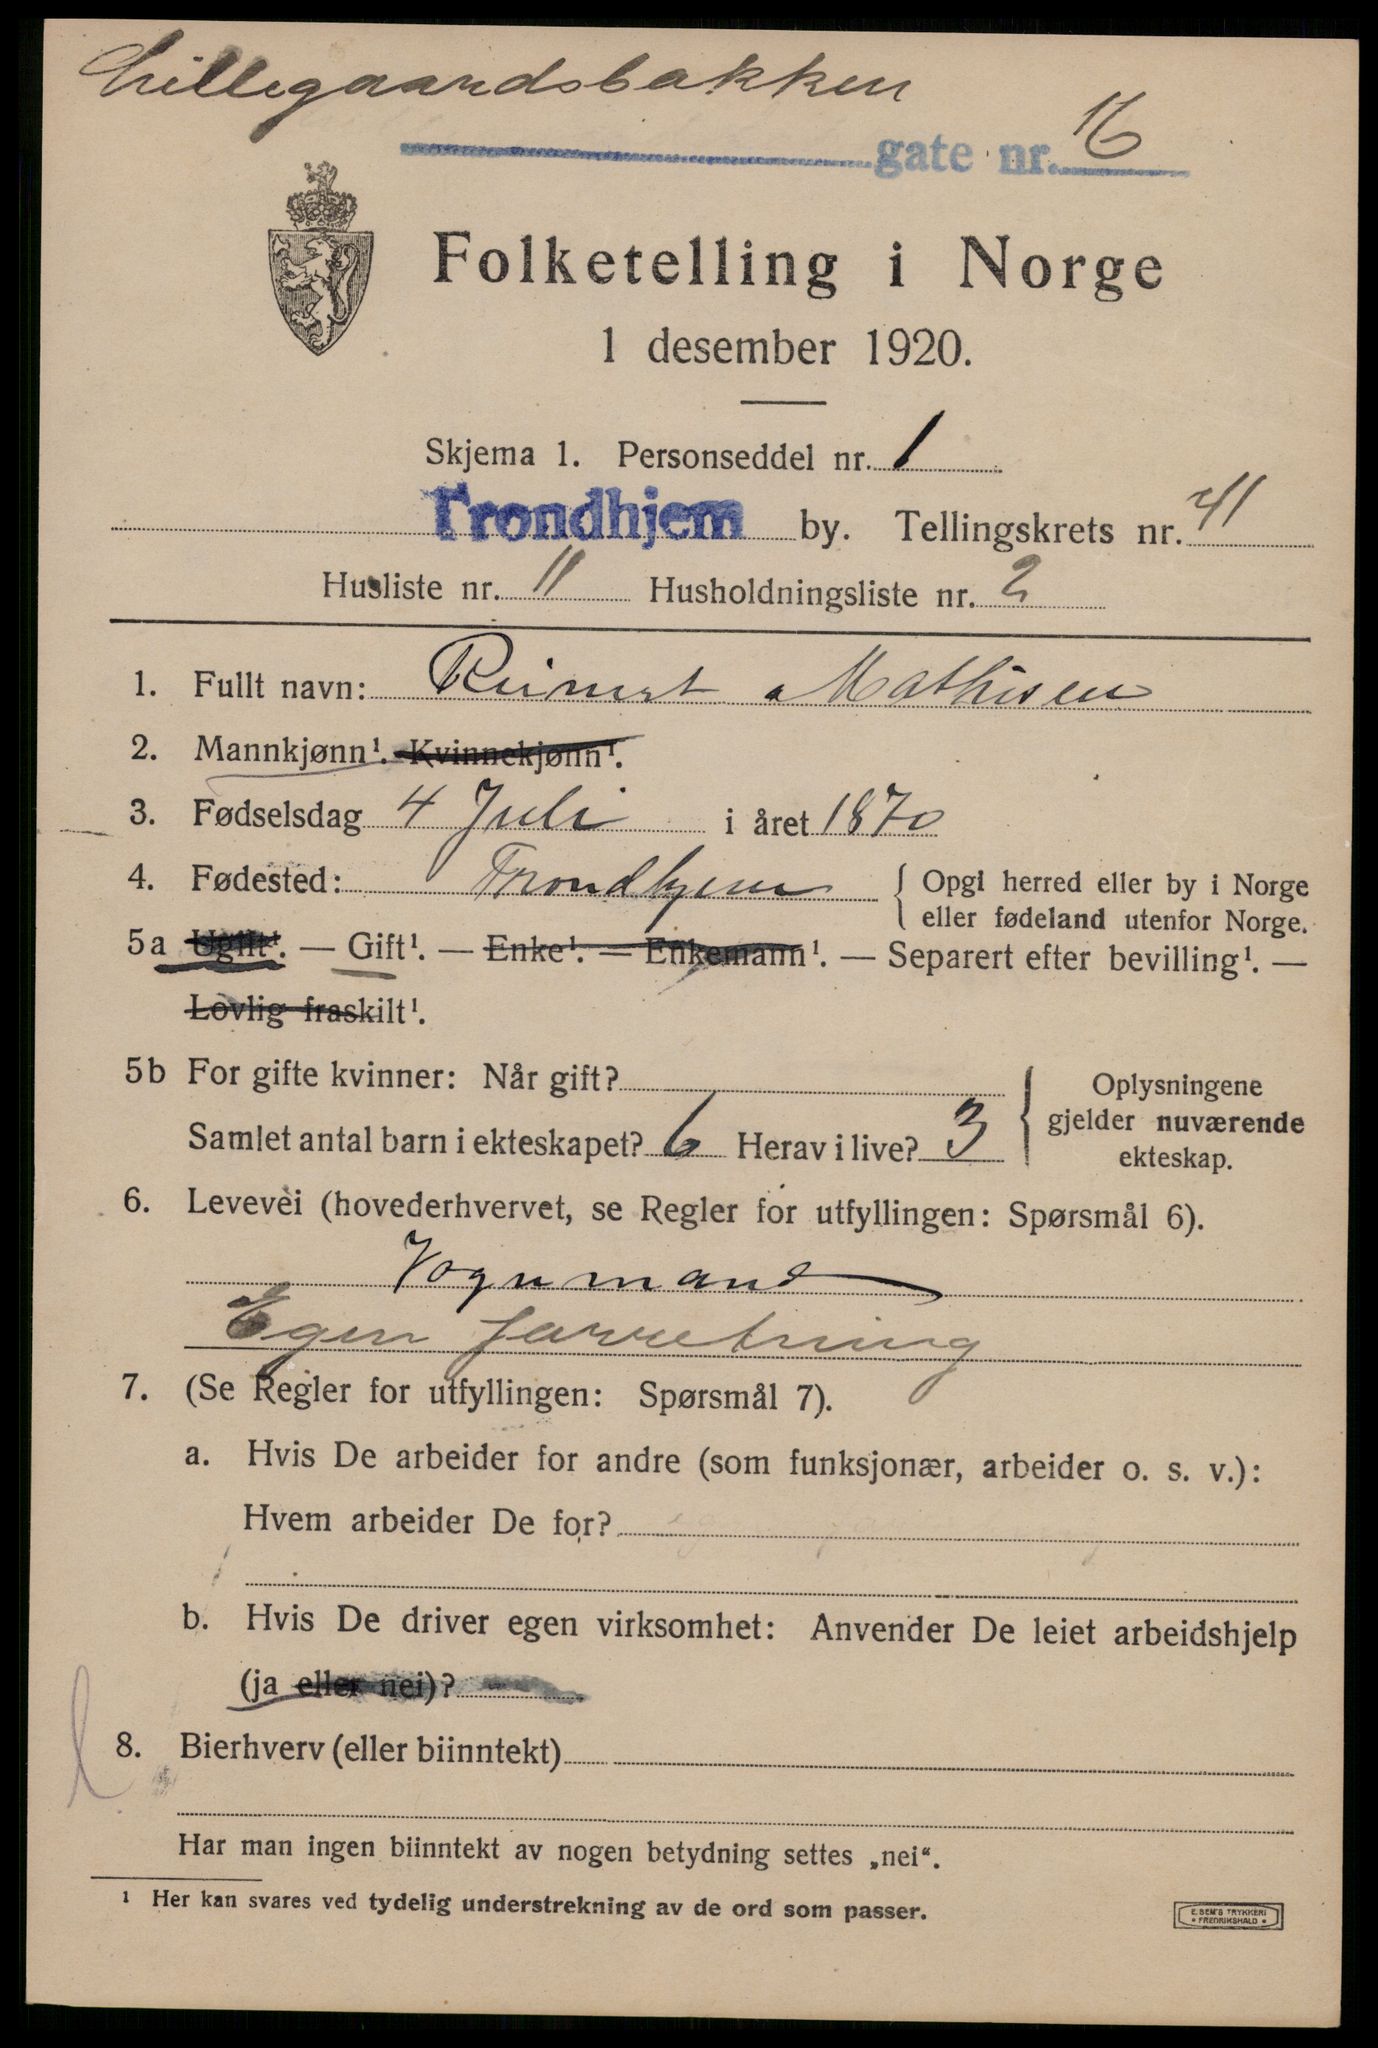 Lillegaardsbakken
gate nr. 16
Folketelling i Norge
1 desember 1920.
Skjema 1. Personseddel nr. 1
Trondhjem by. Tellingskrets nr. 41
Husliste nr. 11 Husholdningsliste nr. 2
1. Fullt navn: Reinert Mathisen
2. Mannkjønn¹. Kvinnekjønn¹.
3. Fødselsdag 4 Juli i året 1870
4. Fødested: Trondhjem { Opgi herred eller by i Norge
eller fødeland utenfor Norge.
5a Ugift¹. — Gift¹. — Enke¹. — Enkemann¹. — Separert efter bevilling¹. —
Lovlig fraskilt¹.
5b For gifte kvinner: Når gift?
Samlet antal barn i ekteskapet? 6 Herav i live? 3
Oplysningene
gjelder nuværende
ekteskap.
6. Levevei (hovederhvervet, se Regler for utfyllingen: Spørsmål 6).
Vognmand
Egen forretning
7. (Se Regler for utfyllingen: Spørsmål 7).
a. Hvis De arbeider for andre (som funksjonær, arbeider o. s. v.):
Hvem arbeider De for?
b. Hvis De driver egen virksomhet: Anvender De leiet arbeidshjelp
(ja eller nei)?
8. Bierhverv (eller biinntekt)
Har man ingen biinntekt av nogen betydning settes „nei“.
¹ Her kan svares ved tydelig understrekning av de ord som passer.
E. SEM'S TRYKKERI
• FREDRIKSHALD •